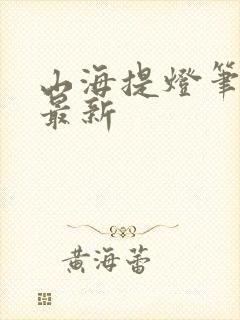 山海提燈筆
最新
黃海蕾